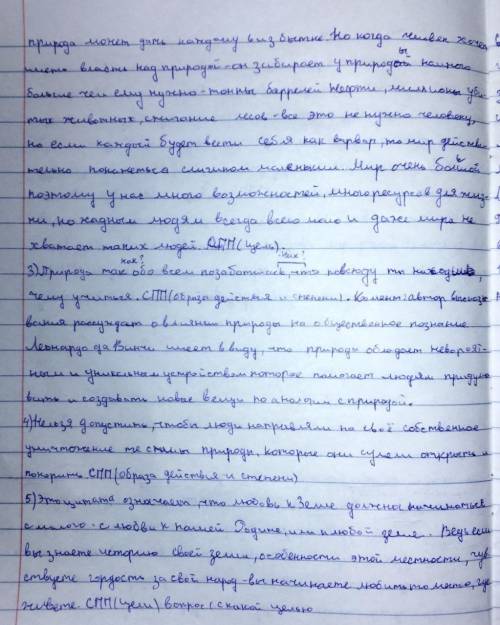 природа может дать каждому в избытке. Но когда человек хочет
иметь власть над природой - он забирает у природы намного
больше чем ему нужно - тонны баррелей нефти, миллионы уби
тых животных, сжигание лесов - все это не нужно человеку,
но если каждый будет вести себя как варвар, то мир действи
тельно покажется слишком маленьким. Мир очень большой
поэтому у нас много возможностей, много ресурсов для жиз-
ни, но жадным людям всегда всего мало и даже мира не
хватает таких людей. СПП (цель).
как? как?
3) Природа так обо всем позаботилась, что повсюду ты находишь,
чему учиться. СПП (образа действия и степени). Коммент: автор высказы
вания рассуждает о влиянии природы на общественное познание
Леонардо да Винчи имеет в виду, что природа обладает невероят-
ным и уникальным устройством которое помогает людям придумы
вать и создавать новые вещи по аналогии с природой.
4) Нельзя допустить, чтобы люди направляли на своё собственное
уничтожение те силы природы, которые они сумели открыть и
покорить. СПП (образа действия и степени)
5) Эта цитата означает, что любовь к Земле должна начинаться
с малого - с любви к нашей Родине, или к любой земле. Ведь если
вы знаете историю своей земли, особенности этой местности, чув
ствуете гордость за свой народ - вы начинаете любить то место, где
живете. СПП (цели) вопрос (с какой целью